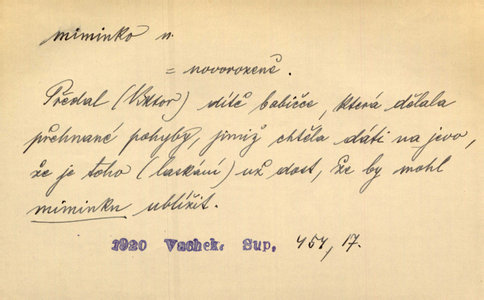 miminko n.
= novorozeně.
Předal (Viktor) dítě babičce, která dělala
přehnané pohyby, jimiž chtěla dáti na jevo,
že je toho (laskání) už dost, že by mohl
miminku ublížit.
1920 Vachek. Sup. 454, 17.